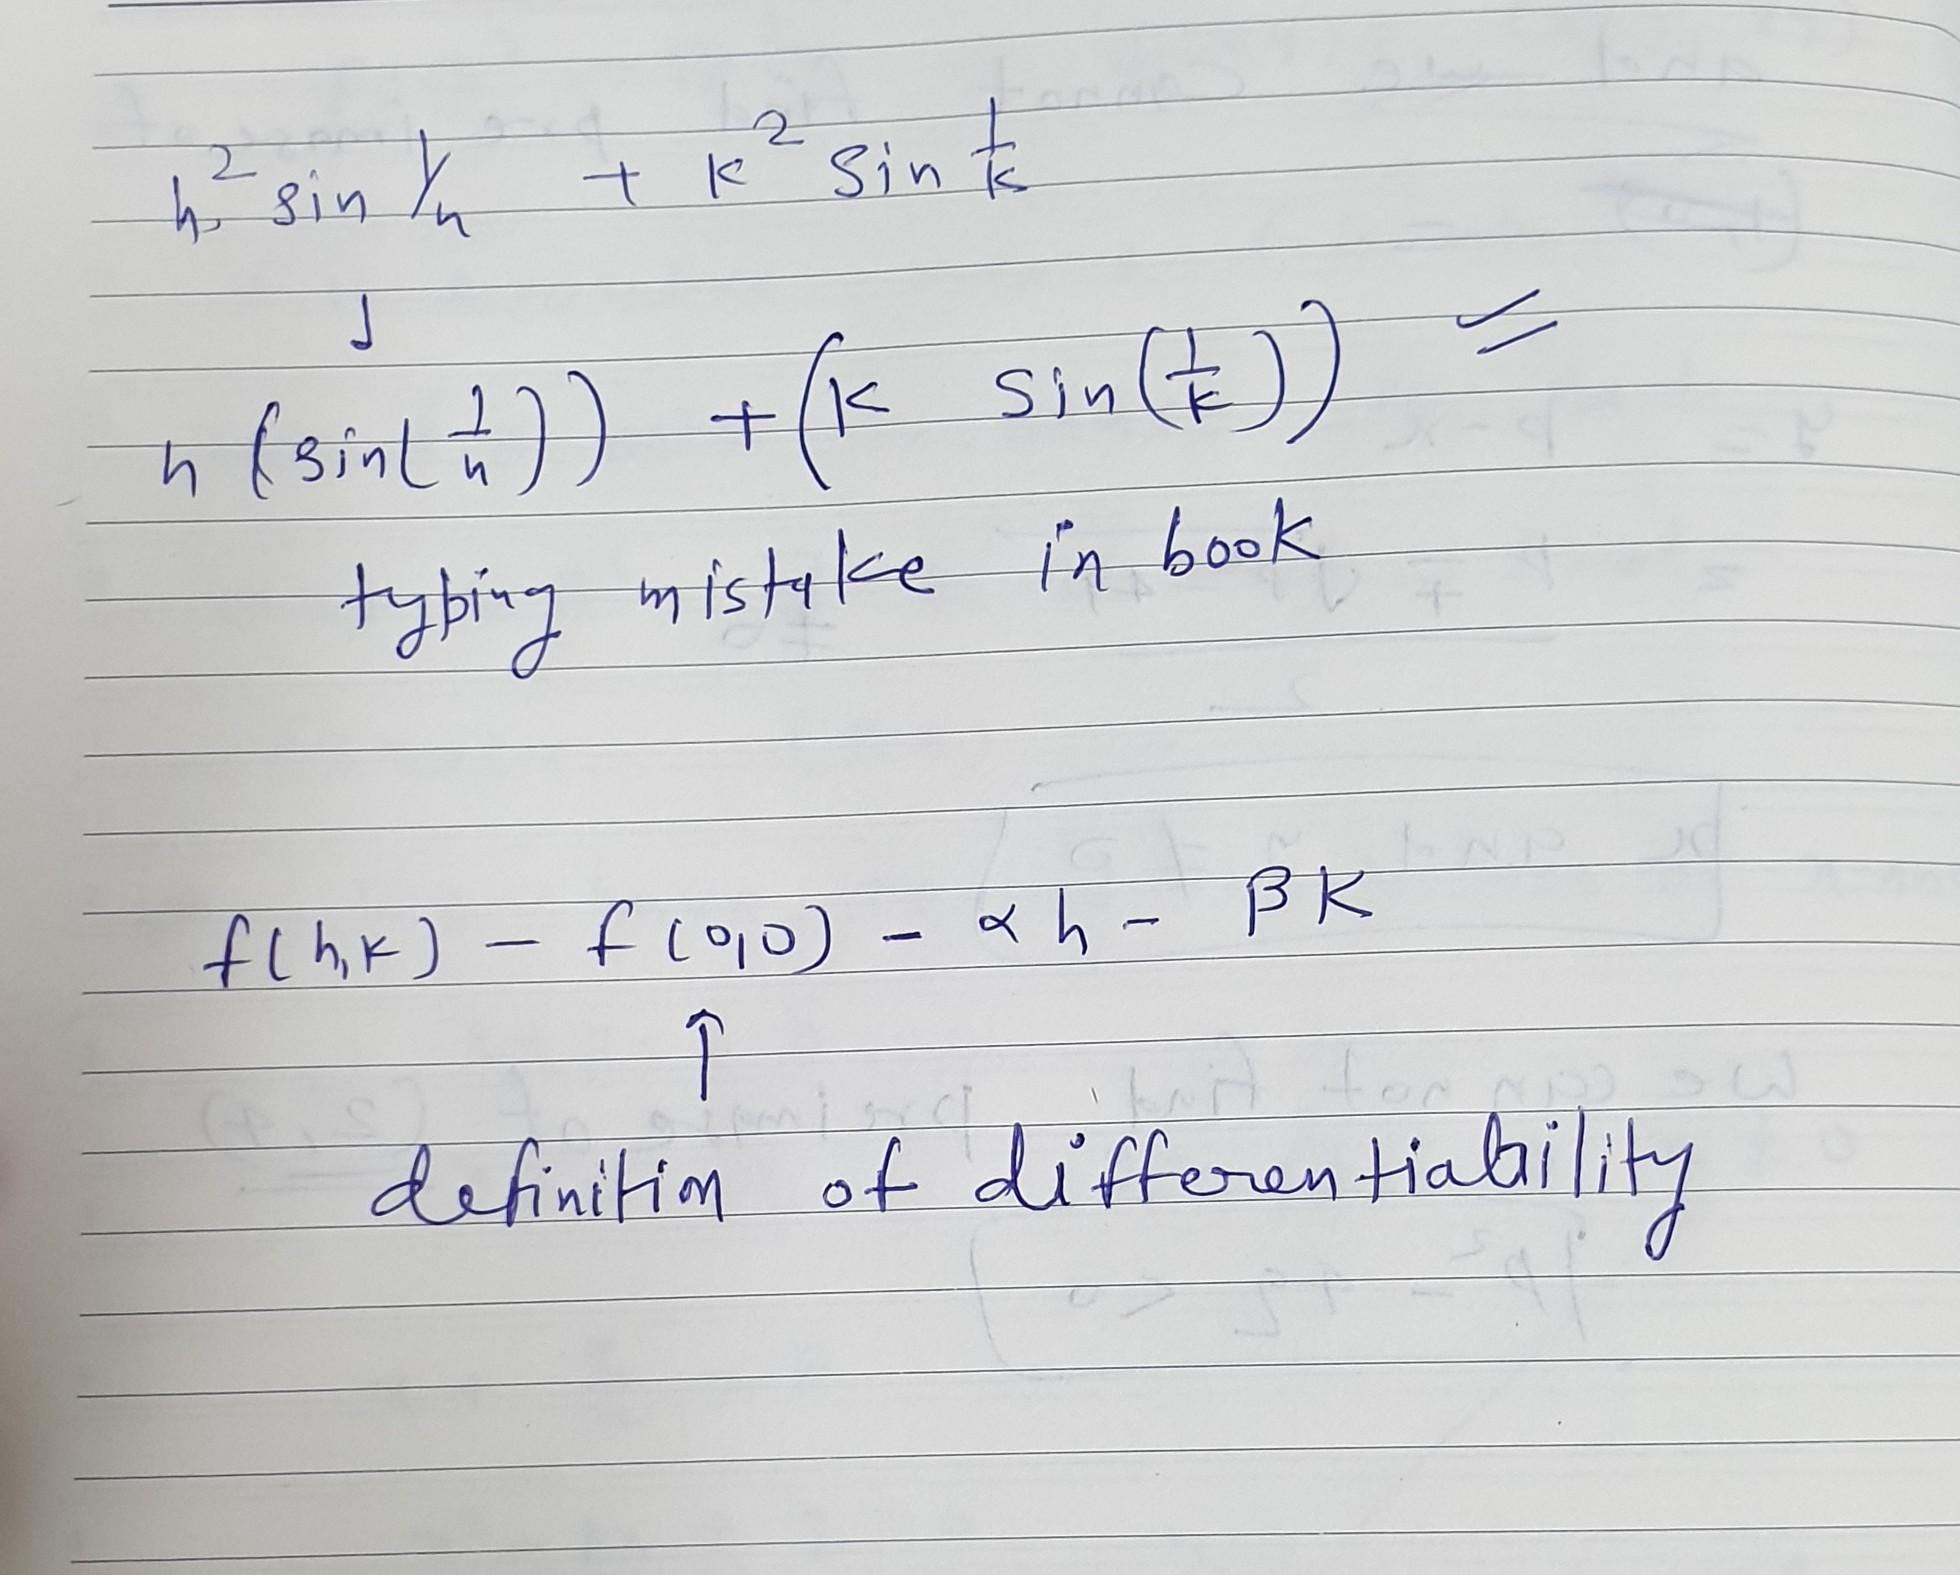 h² sin 1/h + k² sin 1/k
↓
h (sin(1/h)) + (k sin(1/k)) =
typing mistake in book
f(h,k) - f(0,0) - αh - βk
↑
definition of differentiability